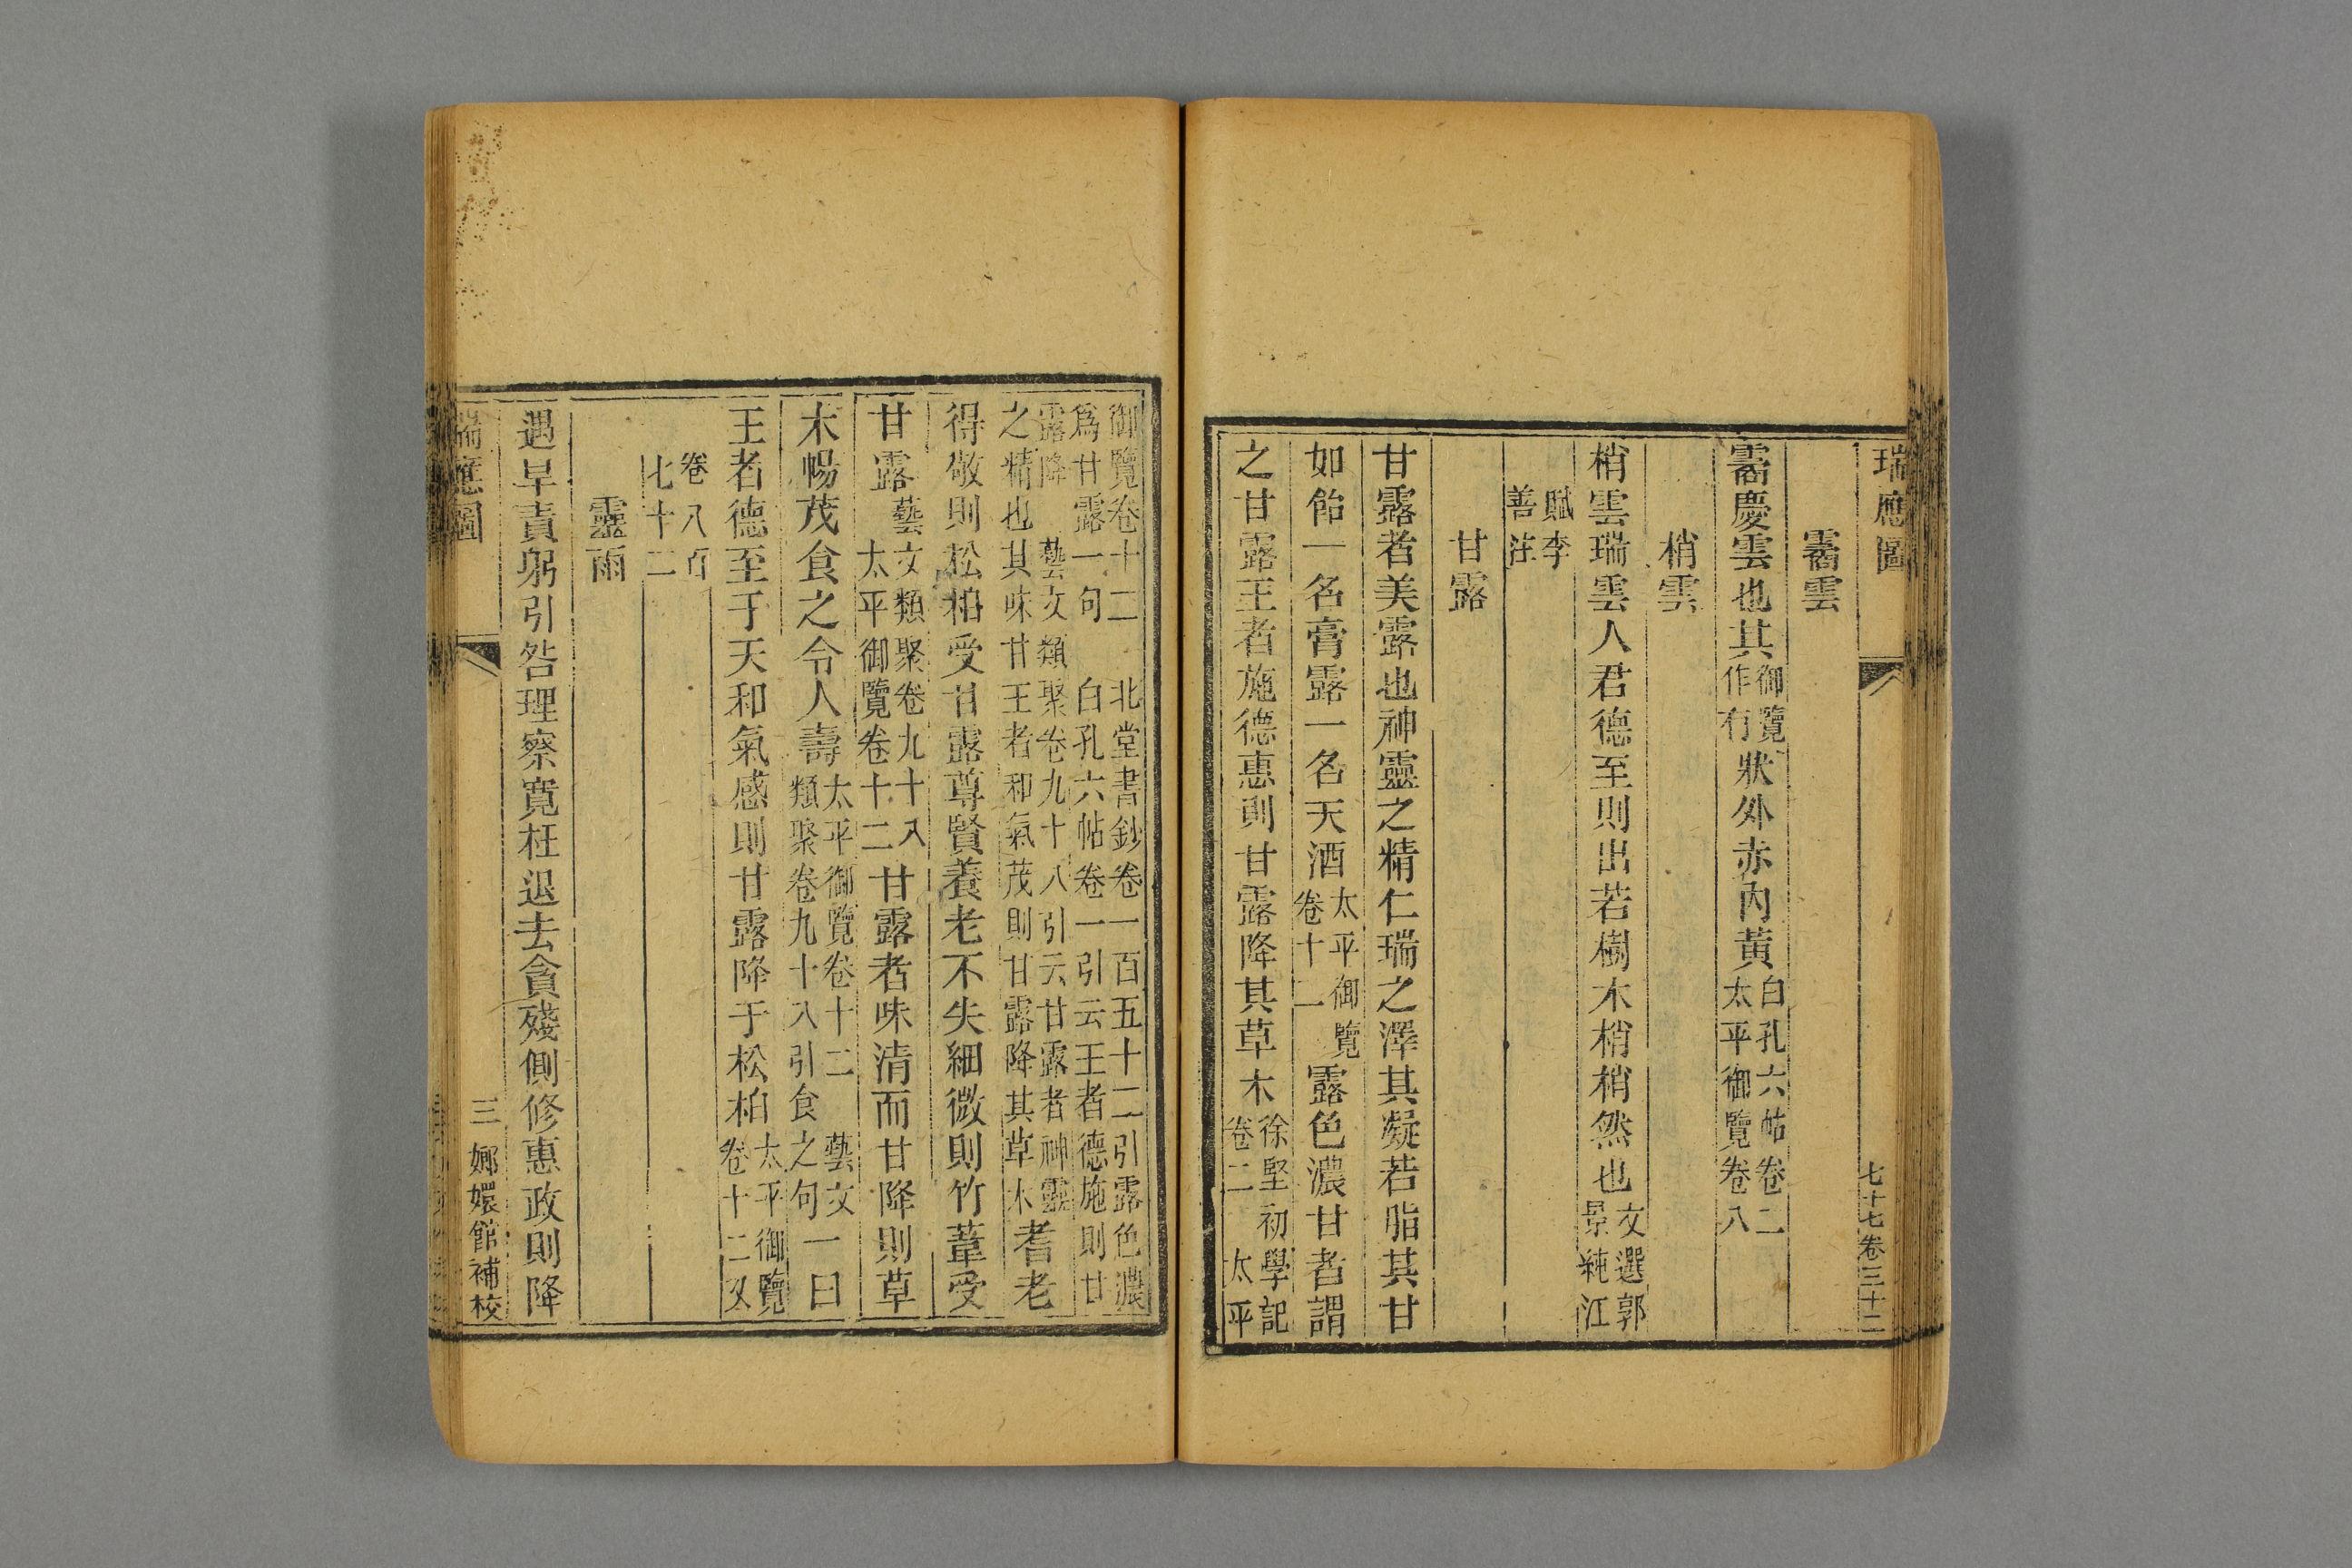 瑞應圖
七十七卷三十二
矞雲
矞慶雲也其御覽作有狀外赤內黃白孔六帖卷二太平御覽卷八
梢雲
梢雲瑞雲人君德至則出若樹木梢梢然也文選郭景純江
賦李善注
甘露
甘露者美露也神靈之精仁瑞之澤其凝若脂其甘
如飴一名膏露一名天酒太平御覽卷十二露色濃甘者謂
之甘露王者施德惠則甘露降其草木徐堅初學記卷二 太平
御覽卷十二 北堂書鈔卷一百五十二引露色濃
爲甘露一句 白孔六帖卷一引云王者德施則甘
露降 藝文類聚卷九十八引云甘露者神靈
之精也其味甘王者和氣茂則甘露降其草木耆老
得敬則松柏受甘露尊賢養老不失細微則竹葦受
甘露藝文類聚卷九十八太平御覽卷十二甘露者味清而甘降則草
木暢茂食之令人壽太平御覽卷十二 藝文類聚卷九十八引食之句一曰
王者德至于天和氣感則甘露降于松柏太平御覽卷十二又
卷八百七十二
靈雨
遇旱責躬引咎理察寬枉退去貪殘側修惠政則降
瑞應圖
三 嫏嬛館補校